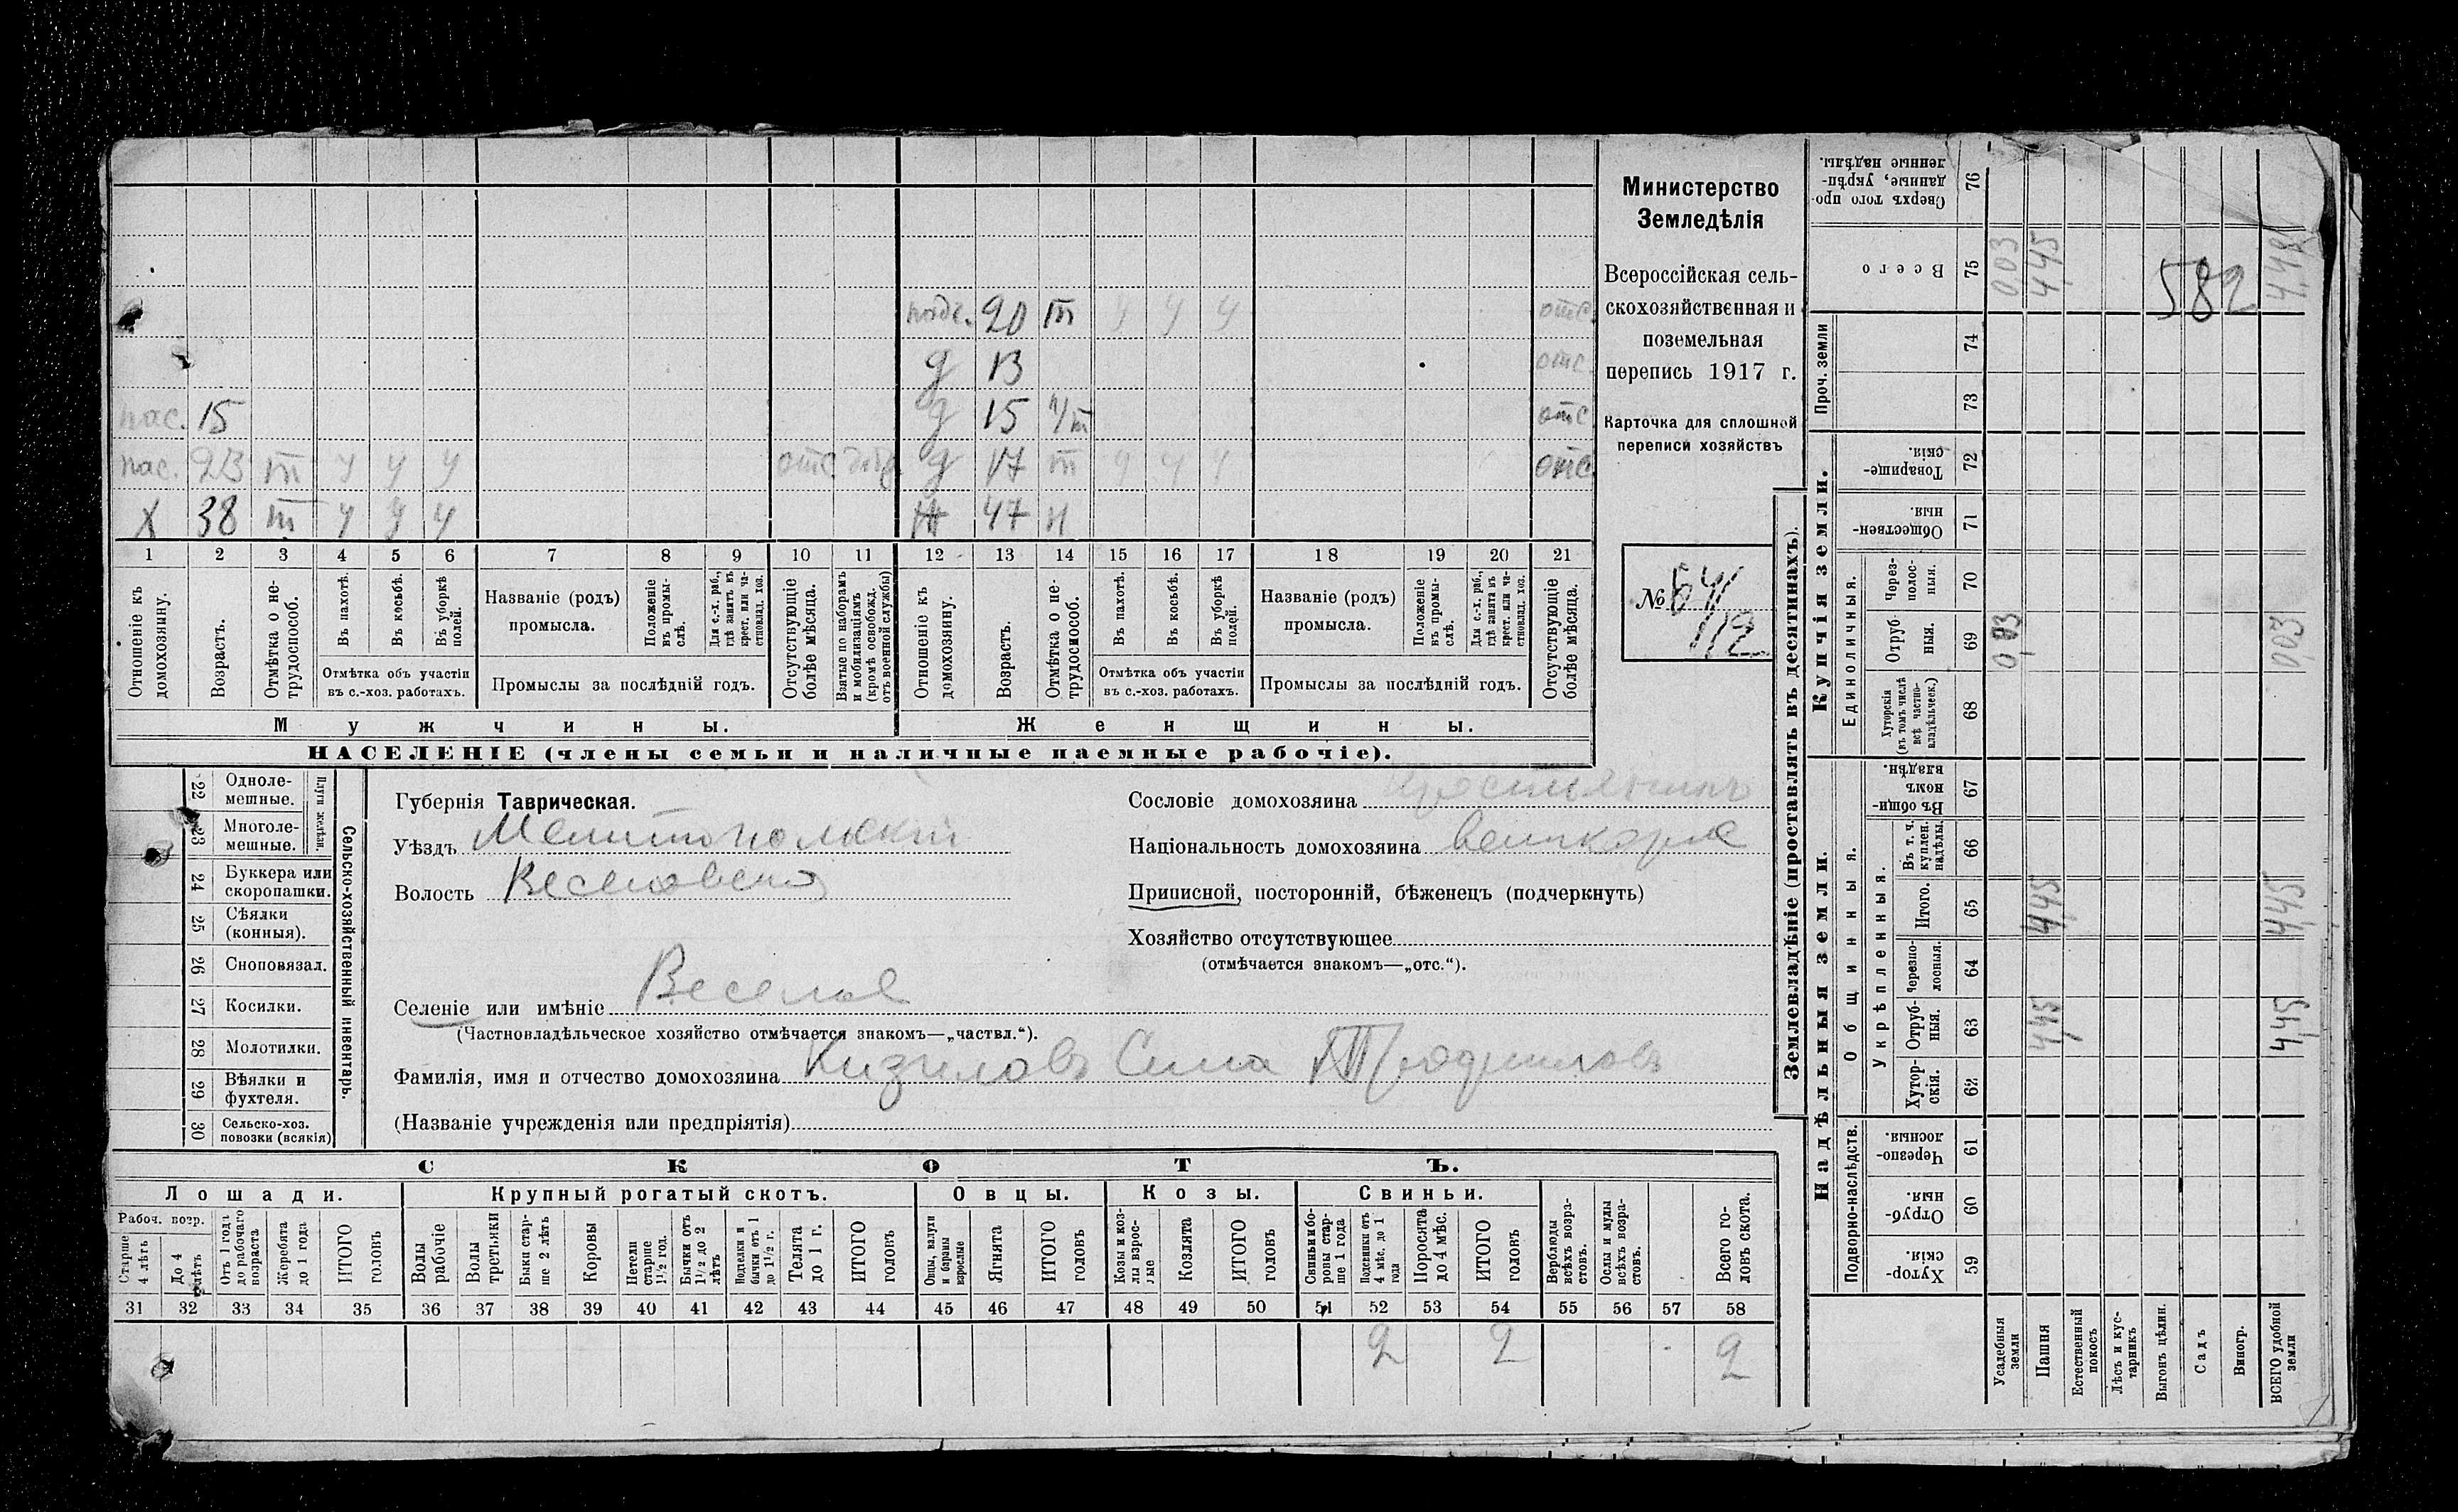 подс. 20 т у у у отс.
д 13 отс.
пас. 15 д 15 п/т отс
пас. 23 т у у у отс д 17 т у у у отс.
х 38 т у у у ж 47 н
1 2 3 4 5 6 7 8 9 10 11 12 13 14 15 16 17 18 19 20 21
Отношеніе къ домохозяину.
Возрастъ.
Отмѣтка о не-
трудоспособ.
Въ пахотѣ.
Въ косьбѣ.
Въ уборкѣ
полей.
Отмѣтка объ участіи
въ с.-хоз. работахъ.
Названіе (родъ)
промысла.
Положеніе
въ промы-
слѣ.
Для с.-х. раб.,
гдѣ занятъ въ
крест. или ча-
стновлад. хоз.
Промыслы за послѣдній годъ.
Отсутствующіе
болѣе мѣсяца.
Взятые по наборамъ
и мобилизаціямъ
(кромѣ освобожд.
отъ военной службы)
Отношеніе къ
домохозяину.
Возрастъ.
Отмѣтка о не-
трудоспособ.
Въ пахотѣ.
Въ косьбѣ.
Въ уборкѣ
полей.
Отмѣтка объ участіи
въ с.-хоз. работахъ.
Названіе (родъ)
промысла.
Положеніе
въ промы-
слѣ.
Для с.-х. раб.,
гдѣ занята въ
крест. или ча-
стновлад. хоз.
Промыслы за послѣдній годъ.
Отсутствующіе
болѣе мѣсяца.
Мужчины.
Женщины.
НАСЕЛЕНІЕ (члены семьи и наличные наемные рабочіе).
Министерство
Земледѣлія
Всероссійская сель-
скохозяйственная и
поземельная
перепись 1917 г.
Карточка для сплошной
переписи хозяйствъ
№ 641/12
Сельско-хозяйственный инвентарь.
Плуги желѣзн.
22 Одноле-
мешные.
23 Многоле-
мешные.
24 Буккера или
скоропашки.
25 Сѣялки
(конныя).
26 Сноповязал.
27 Косилки.
28 Молотилки.
29 Вѣялки и
фухтеля.
30 Сельско-хоз.
повозки (всякія)
Губернія Таврическая.
Уѣздъ Мелитопольскій
Волость Веселовская
Селеніе или имѣніе Веселое
(Частновладѣльческое хозяйство отмѣчается знакомъ—„частвл.“).
Фамилія, имя и отчество домохозяина Кизиловъ Сила Трофимовъ
(Названіе учрежденія или предпріятія)
Сословіе домохозяина крестьянинъ
Національность домохозяина великорос
Приписной, посторонній, бѣженецъ (подчеркнуть)
Хозяйство отсутствующее
(отмѣчается знакомъ—„отс.“).
СКОТЪ.
Лошади.
Рабоч. возр.
Старше
4 лѣтъ
До 4
лѣтъ
Отъ 1 года
до рабочаго
возраста
Жеребята
до 1 года
ИТОГО
головъ
Крупный рогатый скотъ.
Волы
рабочіе
Волы
третьяки
Быки стар-
ше 2 лѣтъ
Коровы
Нетели
старше
1½ год.
Бычки отъ
1½ до 2
лѣтъ
Подтелки и
бычки отъ 1
до 1½ г.
Телята
до 1 г.
ИТОГО
головъ
Овцы.
Овцы, валухи
и бараны
взрослые
Ягнята
ИТОГО
головъ
Козы.
Козы и коз-
лы взрос-
лые
Козлята
ИТОГО
головъ
Свиньи.
Свиньи и бо-
ровы стар-
ше 1 года
Подсвинки отъ
4 мѣс. до 1
года
Поросята
до 4 мѣс.
ИТОГО
головъ
Верблюды
всѣхъ возра-
стовъ.
Ослы и мулы
всѣхъ возра-
стовъ.
Всего го-
ловъ скота.
31 32 33 34 35 36 37 38 39 40 41 42 43 44 45 46 47 48 49 50 51 52 53 54 55 56 57 58
2 2 2
Землевладѣніе (проставлять въ десятинахъ).
Надѣльныя земли.
Подворно-наслѣдств.
Хутор-
скія. 59
Отруб-
ныя. 60
Черезпо-
лосныя. 61
Общинныя.
Укрѣпленныя.
Хутор-
скія. 62
Отруб-
ныя. 63
Черезпо-
лосныя. 64
Итого. 65
Въ т. ч.
куплен.
надѣлы. 66
Въ общи-
номъ
владѣн. 67
Купчія земли.
Единоличныя.
Хуторскія
(въ томъ числѣ
всѣ частно-
владѣльческ.) 68
Отруб-
ныя. 69
Через-
полос-
ныя. 70
Обществен-
ныя. 71
Товарище-
скія. 72
Проч. земли
73
74
Всего 75
Сверхъ того про-
данные, укрѣп-
ленные надѣлы. 76
Усадебныя
земли
0,03 003
Пашня
4,45 4,45 4,45
Естественный
покосъ
Лѣсъ и кус-
тарникъ
Выгонъ цѣлин.
Садъ
Виногр.
582
ВСЕГО удобной
земли
4,45 4,45 0,03 4,48